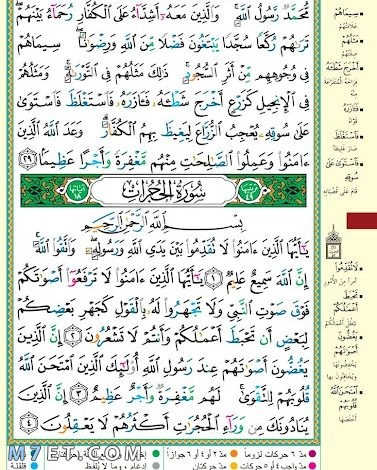 مُّحَمَّدٌ رَّسُولُ ٱللَّهِ ۚ وَٱلَّذِينَ مَعَهُۥٓ أَشِدَّآءُ عَلَى ٱلْكُفَّارِ رُحَمَآءُ بَيْنَهُمْ ۖ
تَرَىٰهُمْ رُكَّعًا سُجَّدًا يَبْتَغُونَ فَضْلًا مِّنَ ٱللَّهِ وَرِضْوَٰنًا ۖ سِيمَاهُمْ
فِى وُجُوهِهِم مِّنْ أَثَرِ ٱلسُّجُودِ ۚ ذَٰلِكَ مَثَلُهُمْ فِى ٱلتَّوْرَىٰةِ ۚ وَمَثَلُهُمْ
فِى ٱلْإِنجِيلِ كَزَرْعٍ أَخْرَجَ شَطْـَٔهُۥ فَـَٔازَرَهُۥ فَٱسْتَغْلَظَ فَٱسْتَوَىٰ
عَلَىٰ سُوقِهِۦ يُعْجِبُ ٱلزُّرَّاعَ لِيَغِيظَ بِهِمُ ٱلْكُفَّارَ ۗ وَعَدَ ٱللَّهُ ٱلَّذِينَ
ءَامَنُوا۟ وَعَمِلُوا۟ ٱلصَّٰلِحَٰتِ مِنْهُم مَّغْفِرَةً وَأَجْرًا عَظِيمًۢا ٢٩
سُورَةُ الحُجُرَاتِ
بِسْمِ ٱللَّهِ ٱلرَّحْمَٰنِ ٱلرَّحِيمِ
يَٰٓأَيُّهَا ٱلَّذِينَ ءَامَنُوا۟ لَا تُقَدِّمُوا۟ بَيْنَ يَدَىِ ٱللَّهِ وَرَسُولِهِۦ ۖ وَٱتَّقُوا۟ ٱللَّهَ ۚ
إِنَّ ٱللَّهَ سَمِيعٌ عَلِيمٌ ١ يَٰٓأَيُّهَا ٱلَّذِينَ ءَامَنُوا۟ لَا تَرْفَعُوٓا۟ أَصْوَٰتَكُمْ
فَوْقَ صَوْتِ ٱلنَّبِىِّ وَلَا تَجْهَرُوا۟ لَهُۥ بِٱلْقَوْلِ كَجَهْرِ بَعْضِكُمْ
لِبَعْضٍ أَن تَحْبَطَ أَعْمَٰلُكُمْ وَأَنتُمْ لَا تَشْعُرُونَ ٢ إِنَّ ٱلَّذِينَ
يَغُضُّونَ أَصْوَٰتَهُمْ عِندَ رَسُولِ ٱللَّهِ أُو۟لَٰٓئِكَ ٱلَّذِينَ ٱمْتَحَنَ ٱللَّهُ
قُلُوبَهُمْ لِلتَّقْوَىٰ ۚ لَهُم مَّغْفِرَةٌ وَأَجْرٌ عَظِيمٌ ٣ إِنَّ ٱلَّذِينَ
يُنَادُونَكَ مِن وَرَآءِ ٱلْحُجُرَٰتِ أَكْثَرُهُمْ لَا يَعْقِلُونَ ٤
مدّ ٦ حركات لزوماً
مدّ ٢ أو ٤ أو ٦ جوازاً
مدّ واجب ٤ أو ٥ حركات
مدّ حركتان
إدغام، وما لا يُلفظ
قلقلة
سِيمَاهُمْ
مَثَلُهُمْ
أَخْرَجَ شَطْـَٔهُ
فَـَٔازَرَهُ
فَٱسْتَغْلَظَ
فَٱسْتَوَىٰ عَلَىٰ
سُوقِهِ
لَا تُقَدِّمُوا
تَحْبَطَ
أَعْمَٰلُكُمْ
يَغُضُّونَ
أَصْوَٰتَهُمْ
ٱمْتَحَنَ ٱللَّهُ
قُلُوبَهُمْ